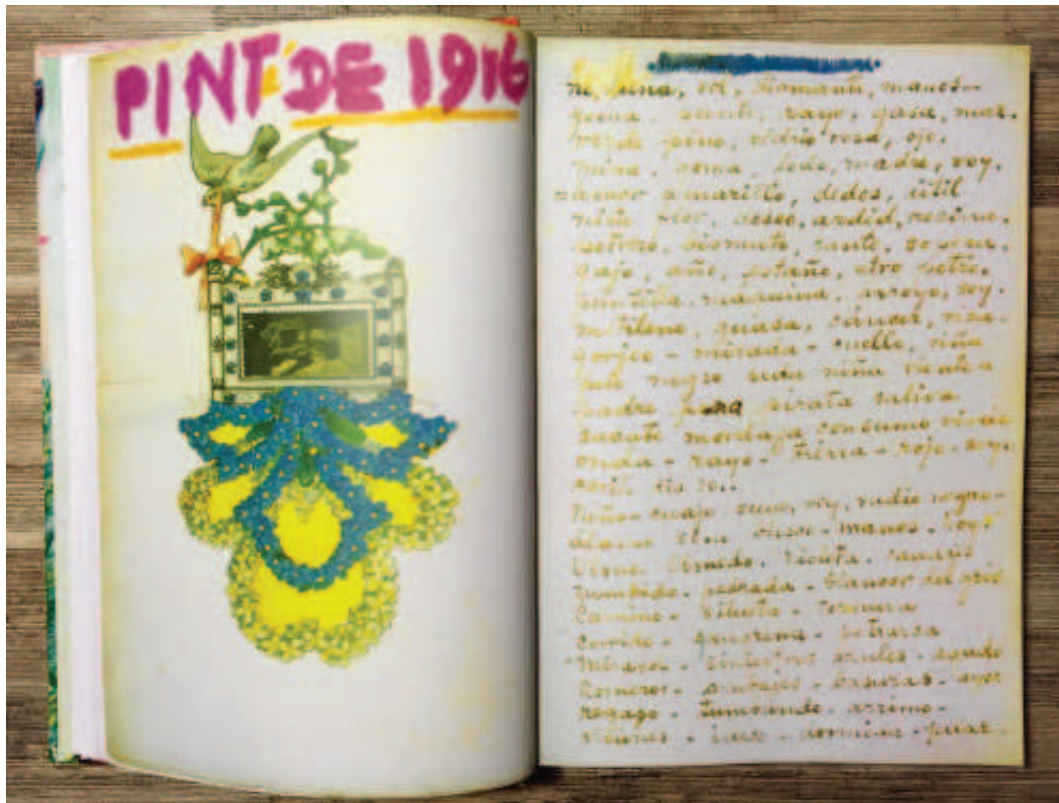 PINTÉ DE 1916
no, luna, sol, diamante, manos--
yema, punto, rayo, gasa, mar.
verde pino, vidrio rosa, ojo,
mina, goma, lodo, madre, voy.
=amor amarillo, dedos, útil
niño flor, deseo, ardid, resina.
potrero, bismuto, santo, sopera.
gajo, año, estaño, otro potro.
maquina, arroyo, soy.
metileno, guasa, cáncer, risa.
gorjeo - mirada - cuello, viña
pelo negro seda niña viento =
padre pena pirata saliva
sacate mordaja consumo vivaz
onda - rayo - tierra - rojo - soy.
Abril día 30.
Niño - cuajo suyo, rey, radio negro -
álamo sino busco - manos. hoy.
Olmo. Olmedo. Violeta. canario
zumbido - pedrada - blancor del gris
Camino - silueta - ternura
Corrido - gangrena - petrarca
mirasol - siniestros azules - agudo
Romeros - basuras - ayer
regazo - tumbando - arrimo -
visiones - iluso - dormida - pilar -